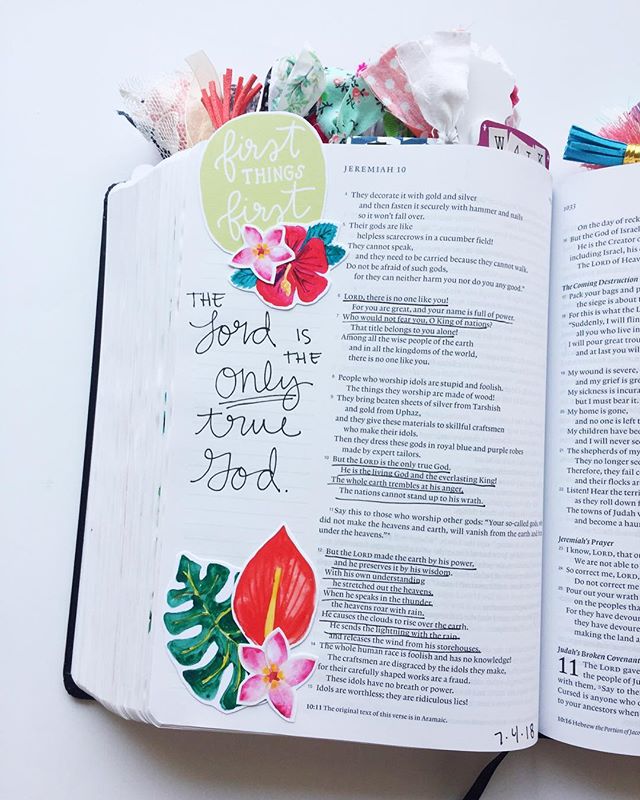 first
THINGS
first
THE
Lord IS
THE
only
true
God.
JEREMIAH 10
4 They decorate it with gold and silver
and then fasten it securely with hammer and nails
so it won't fall over.
5 Their gods are like
helpless scarecrows in a cucumber field!
They cannot speak,
and they need to be carried because they cannot walk.
Do not be afraid of such gods,
for they can neither harm you nor do you any good."
6 LORD, there is no one like you!
For you are great, and your name is full of power.
7 Who would not fear you, O King of nations?
That title belongs to you alone!
Among all the wise people of the earth
and in all the kingdoms of the world,
there is no one like you.
8 People who worship idols are stupid and foolish.
The things they worship are made of wood!
9 They bring beaten sheets of silver from Tarshish
and gold from Uphaz,
and they give these materials to skillful craftsmen
who make their idols.
Then they dress these gods in royal blue and purple robes
made by expert tailors.
10 But the LORD is the only true God.
He is the living God and the everlasting King!
The whole earth trembles at his anger.
The nations cannot stand up to his wrath.
11 Say this to those who worship other gods: "Your so-called gods, w
did not make the heavens and earth, will vanish from the earth and
under the heavens."*
12 But the LORD made the earth by his power,
and he preserves it by his wisdom.
With his own understanding
he stretched out the heavens.
13 When he speaks in the thunder,
the heavens roar with rain.
He causes the clouds to rise over the earth.
He sends the lightning with the rain
and releases the wind from his storehouses.
14 The whole human race is foolish and has no knowledge!
The craftsmen are disgraced by the idols they make,
for their carefully shaped works are a fraud.
These idols have no breath or power.
15 Idols are worthless; they are ridiculous lies!
10:11 The original text of this verse is in Aramaic.
7.4.18
WALK
1033
On the day of reck
16 But the God of Israel
He is the Creator
including Israel, his
The LORD of Heave
The Coming Destruction
17 Pack your bags and p
the siege is about
18 For this is what the L
"Suddenly, I will flin
all you who live in
I will pour great trou
and at last you wil
19 My wound is severe,
and my grief is gre
My sickness is incura
but I must bear it.
20 My home is gone,
and no one is left
My children have be
and I will never se
21 The shepherds of my
They no longer se
Therefore, they fail c
and their flocks ar
22 Listen! Hear the terri
as they roll down f
The towns of Judah w
and become a hau
Jeremiah's Prayer
23 I know, LORD, that o
We are not able to
24 So correct me, LORD,
Do not correct me
25 Pour out your wrath
on the peoples tha
For they have devour
they have devoure
making the land a
Judah's Broken Covenant
11 The LORD gave
the people of J
with them, 3 Say to the
Cursed is anyone who d
to your ancestors when
10:16 Hebrew the Portion of Jaco